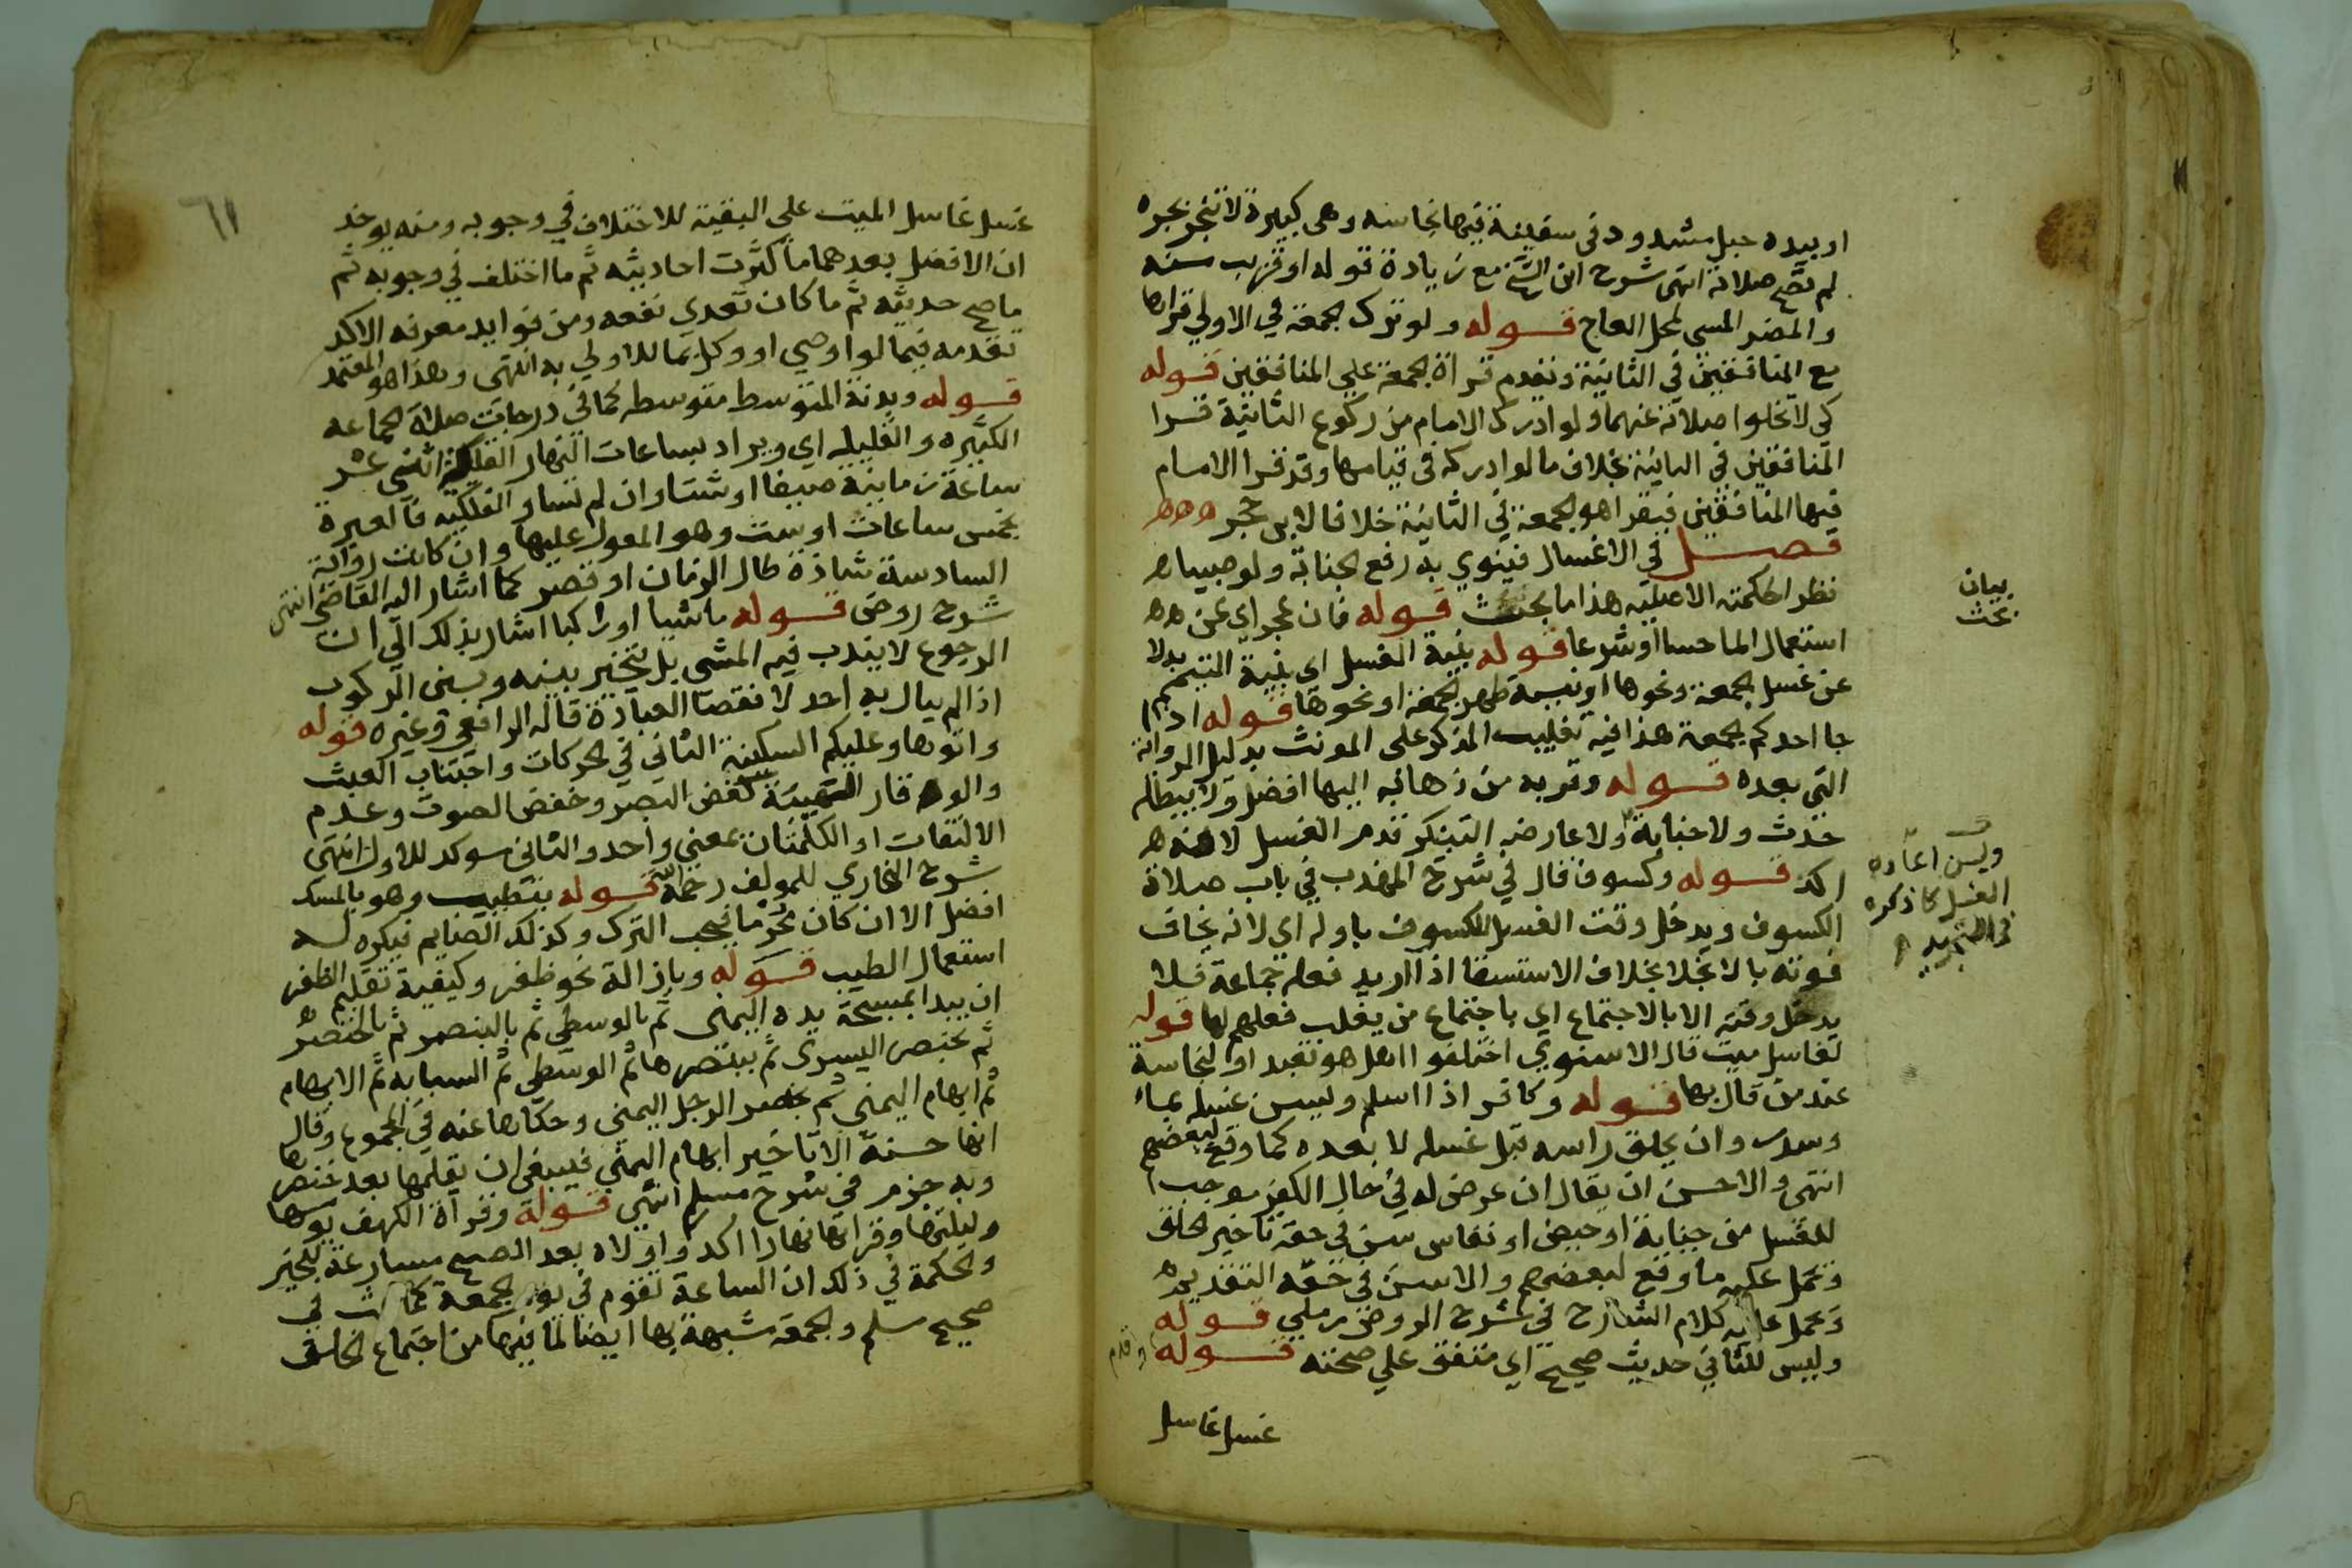 او بيده حبل مشدود في سفينة فيها نجاسه وهي كبيرة لا تنجر بجره
لم تصح صلاته انتهى شرح ابن الشيخ مع زيادة قوله او قريب سنه
والمضر المسي لمحل العاج قوله ولو ترك الجمعة في الاولي قراها
مع المنافقين في الثانية ونقدم قراة الجمعة علي المنافقين قوله
كي لا تخلوا صلاته عنهما ولو ادرك الامام من ركوع الثانية قرا
المنافقين في الثانية بخلاف ما لوا دركه في قيامها وقد قرا الامام
فيها المنافقين فيقرا هو الجمعة في الثانية خلافا لابن حجر
فصل في الاغسال فينوي به رفع الجنابة ولو صبيا
نظر الحكمته الاصليه هذا ما بحث قوله فان عجز اي عن
استعمال الما حسا او شرعا قوله بنية الغسل اي بنية التيمم بدلا
عن غسل الجمعة ونحوها او بنية طهر الجمعة او نحوها قوله اذا
جا احدكم الجمعة هذا فيه تغليب المذكر على المونث بدليل الرواية
التي بعده قوله وقربه من ذهابه اليها افضل ولا يبطله
حدث ولا جنابة ولا عارضه التبكير قدم الغسل لانه
اكد قوله وكسوف قال في شرح المهذب في باب صلاة
الكسوف ويدخل وقت الغسل للكسوف باوله اي لانه يخاف
فوته بالانجلا بخلاف الاستسقا اذا اريد فعله جماعة فلا
يدخل وقته الا بالاجتماع اي باجتماع من يغلب فعلهم لها قوله
لغاسل ميت قال الاسنوي اختلفوا هل هو تعبد او لنجاسة
عند من قال بها قوله وكافر اذا اسلم وليس غسله بماء
وسدر وان يحلق راسه قبل غسله لا بعده كما وقع لبعضهم
انتهى والاحسن ان يقال ان عرض له في حال الكفر موجب
للغسل من جنابة او حيض او نفاس سن في حقه تاخير الحلق
وتحمل عليه ما وقع لبعضهم والا سن في حقه التقديم
وتحمل عليه كلام الشارح في شرح الروض رملي قوله
وليس للثاني حديث صحيح اي متفق علي صحته قوله وقدم
غسل غاسل
بيان
بحث
ويسن اعاده
الغسل كما ذكره
في التجريد
٦١
غسل غاسل الميت على البقية للاختلاف في وجوبه ومنه يوخذ
ان الافضل بعدهما ما كثرت احاديثه ثم ما اختلف في وجوبه ثم
ما صح حديثه ثم ما كان تعدي نفعه ومن فوايد معرفه الاكد
تقدمه فيما لو اوصي او وكل بما للاولي به انتهى وهذا هو المعتمد
قوله وبدنة المتوسط متوسطه كما في درجات صلاة الجماعه
الكثيره والقليله اي ويراد بساعات النهار الفلكية اثنى عشر
ساعة زمانية صيفا او شتا وان لم تساو الفلكيه فالعبرة
بخمس ساعات او ست وهو المعول عليها وان كانت رواية
السادسة شاذة طال الزمان او قصر كما اشار اليه القاضي انتهى
شرح روض قوله ماشيا او راكبا اشار بذلك الي ان
الرجوع لا يندب فيه المشي بل يتخير بينه وبين الركوب
اذ لم ينال به احد لانقضا العبادة قاله الرافعي وغيره قوله
واتوها وعليكم السكينة الثاني في الحركات واجتناب العبث
والوقار الهيئة كغض البصر وخفض الصوت وعدم
الالتفات او الكلمتان بمعني واحد والثاني موكد للاول انتهى
شرح البخاري للمولف رحمه الله قوله بتطيب وهو بالمسك
افضل الا ان كان محرما فيجب الترك وكذلك الصايم فيكره له
استعمال الطيب قوله وبازالة نحو ظفر وكيفية تقليم الظفر
ان يبدا بمسبحة يده اليمنى ثم بالوسطي ثم بالبنصر ثم بالخنصر
ثم بخنصر اليسري ثم ببنصرها ثم الوسطي ثم السبابه ثم الابهام
ثم ابهام اليمني ثم بخنصر الرجل اليمني وحكاها عنه في المجموع وقال
انها حسنة الا تاخير ابهام اليمني فينبغي ان يقلمها بعد خنصرها
وبه جزم في شرح مسلم انتهى قوله وقراة الكهف يومها
وليلتها وقراتها نهارا اكد واولاه بعد الصبح مسارعة للخير
والحكمة في ذلك ان الساعة تقوم في يوم الجمعة كما في
صحيح مسلم والجمعة شبيهة بها ايضا لما فيها من اجتماع الخلق